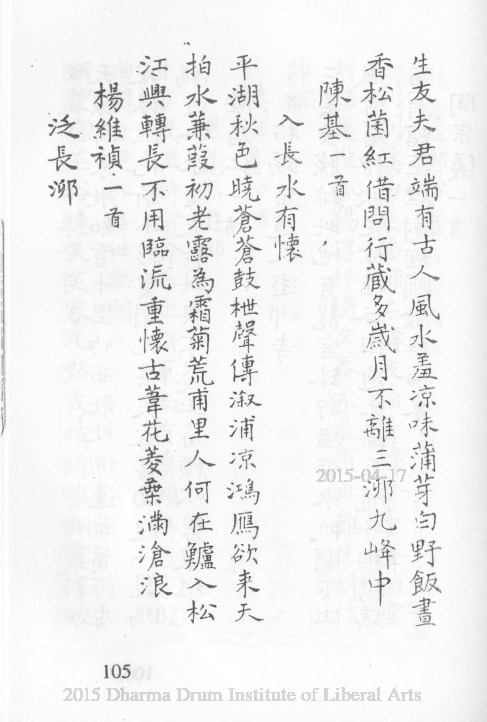 生友夫君端有古人風水盂凉味蒲芽白野飯晝
香松菌紅借問行蔵多歲月不離三泖九峰中
陳基一首
入長水有懷
平湖秋色曉蒼蒼鼓枻聲傳溆浦凉鴻鴈欲来天
拍水蒹葭初老露為霜菊荒甫里人何在鱸入松
江興轉長不用臨流重懷古葦花菱葉滿滄浪
楊維禎一首
泛長泖
2015-04-17
105
2015 Dharma Drum Institute of Liberal Arts